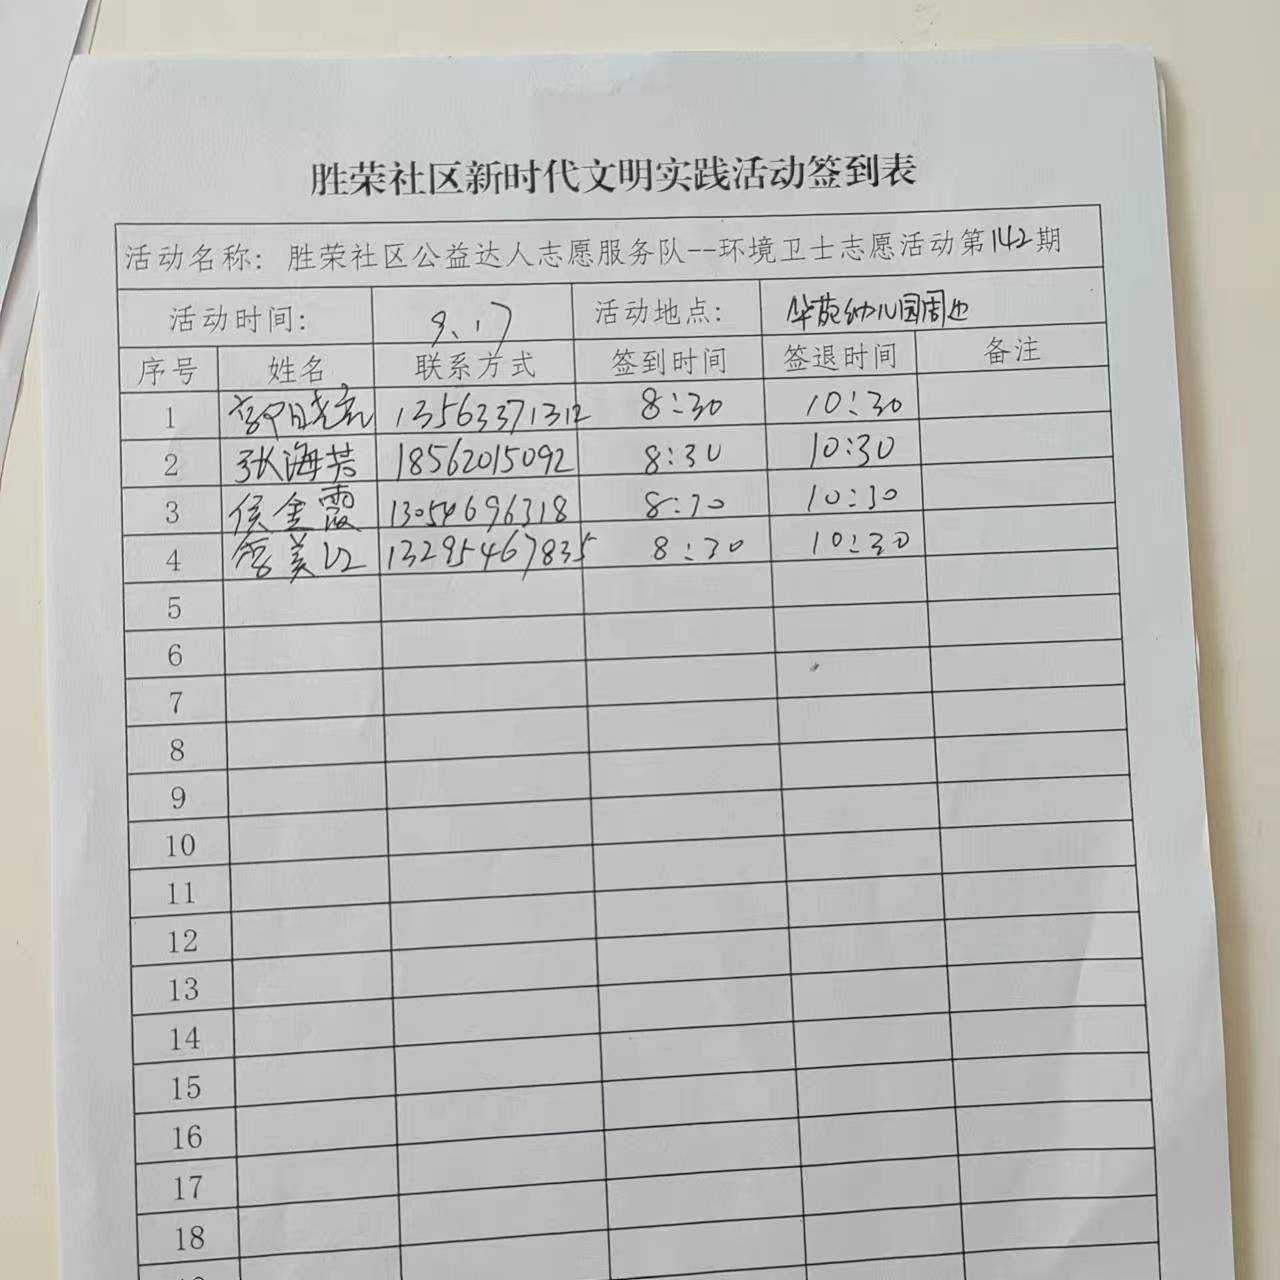 胜荣社区新时代文明实践活动签到表
活动名称：胜荣社区公益达人志愿服务队--环境卫士志愿活动第142期
活动时间： 9.17 活动地点： 华苑幼儿园周边
序号 姓名 联系方式 签到时间 签退时间 备注
1 13563371312 8:30 10:30
2 张海芳 18562015092 8:30 10:30
3 侯金霞 13054696318 8:30 10:30
4 美 13295467835 8:30 10:30
5
6
7
8
9
10
11
12
13
14
15
16
17
18